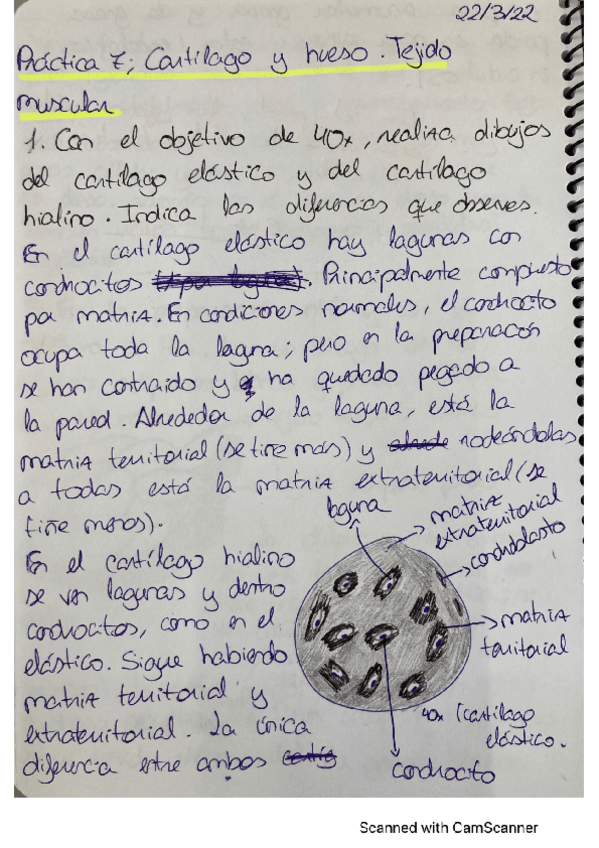 22/3/22
Práctica 7; Cartílago y hueso. Tejido
muscular
1. Con el objetivo de 40x, realiza dibujos
del cartílago elástico y del cartílago
hialino. Indica las diferencias que observes.
En el cartílago elástico hay lagunas con
condrocitos. Principalmente compuesto
por matriz. En condiciones normales, el condrocito
ocupa toda la laguna; pero en la preparación
se han contraido y ha quedado pegado a
la pared. Alrededor de la laguna, está la
matriz territorial (se tiñe más) y rodeándolas
a todas está la matriz extraterritorial (se
tiñe menos).
laguna
matriz
extraterritorial
condroblasto
matriz
territorial
40x (cartílago
elástico.
condrocito
En el cartílago hialino
se ven lagunas y dentro
condrocitos, como en el
elástico. Sigue habiendo
matriz territorial y
extraterritorial. La única
diferencia entre ambos
Scanned with CamScanner